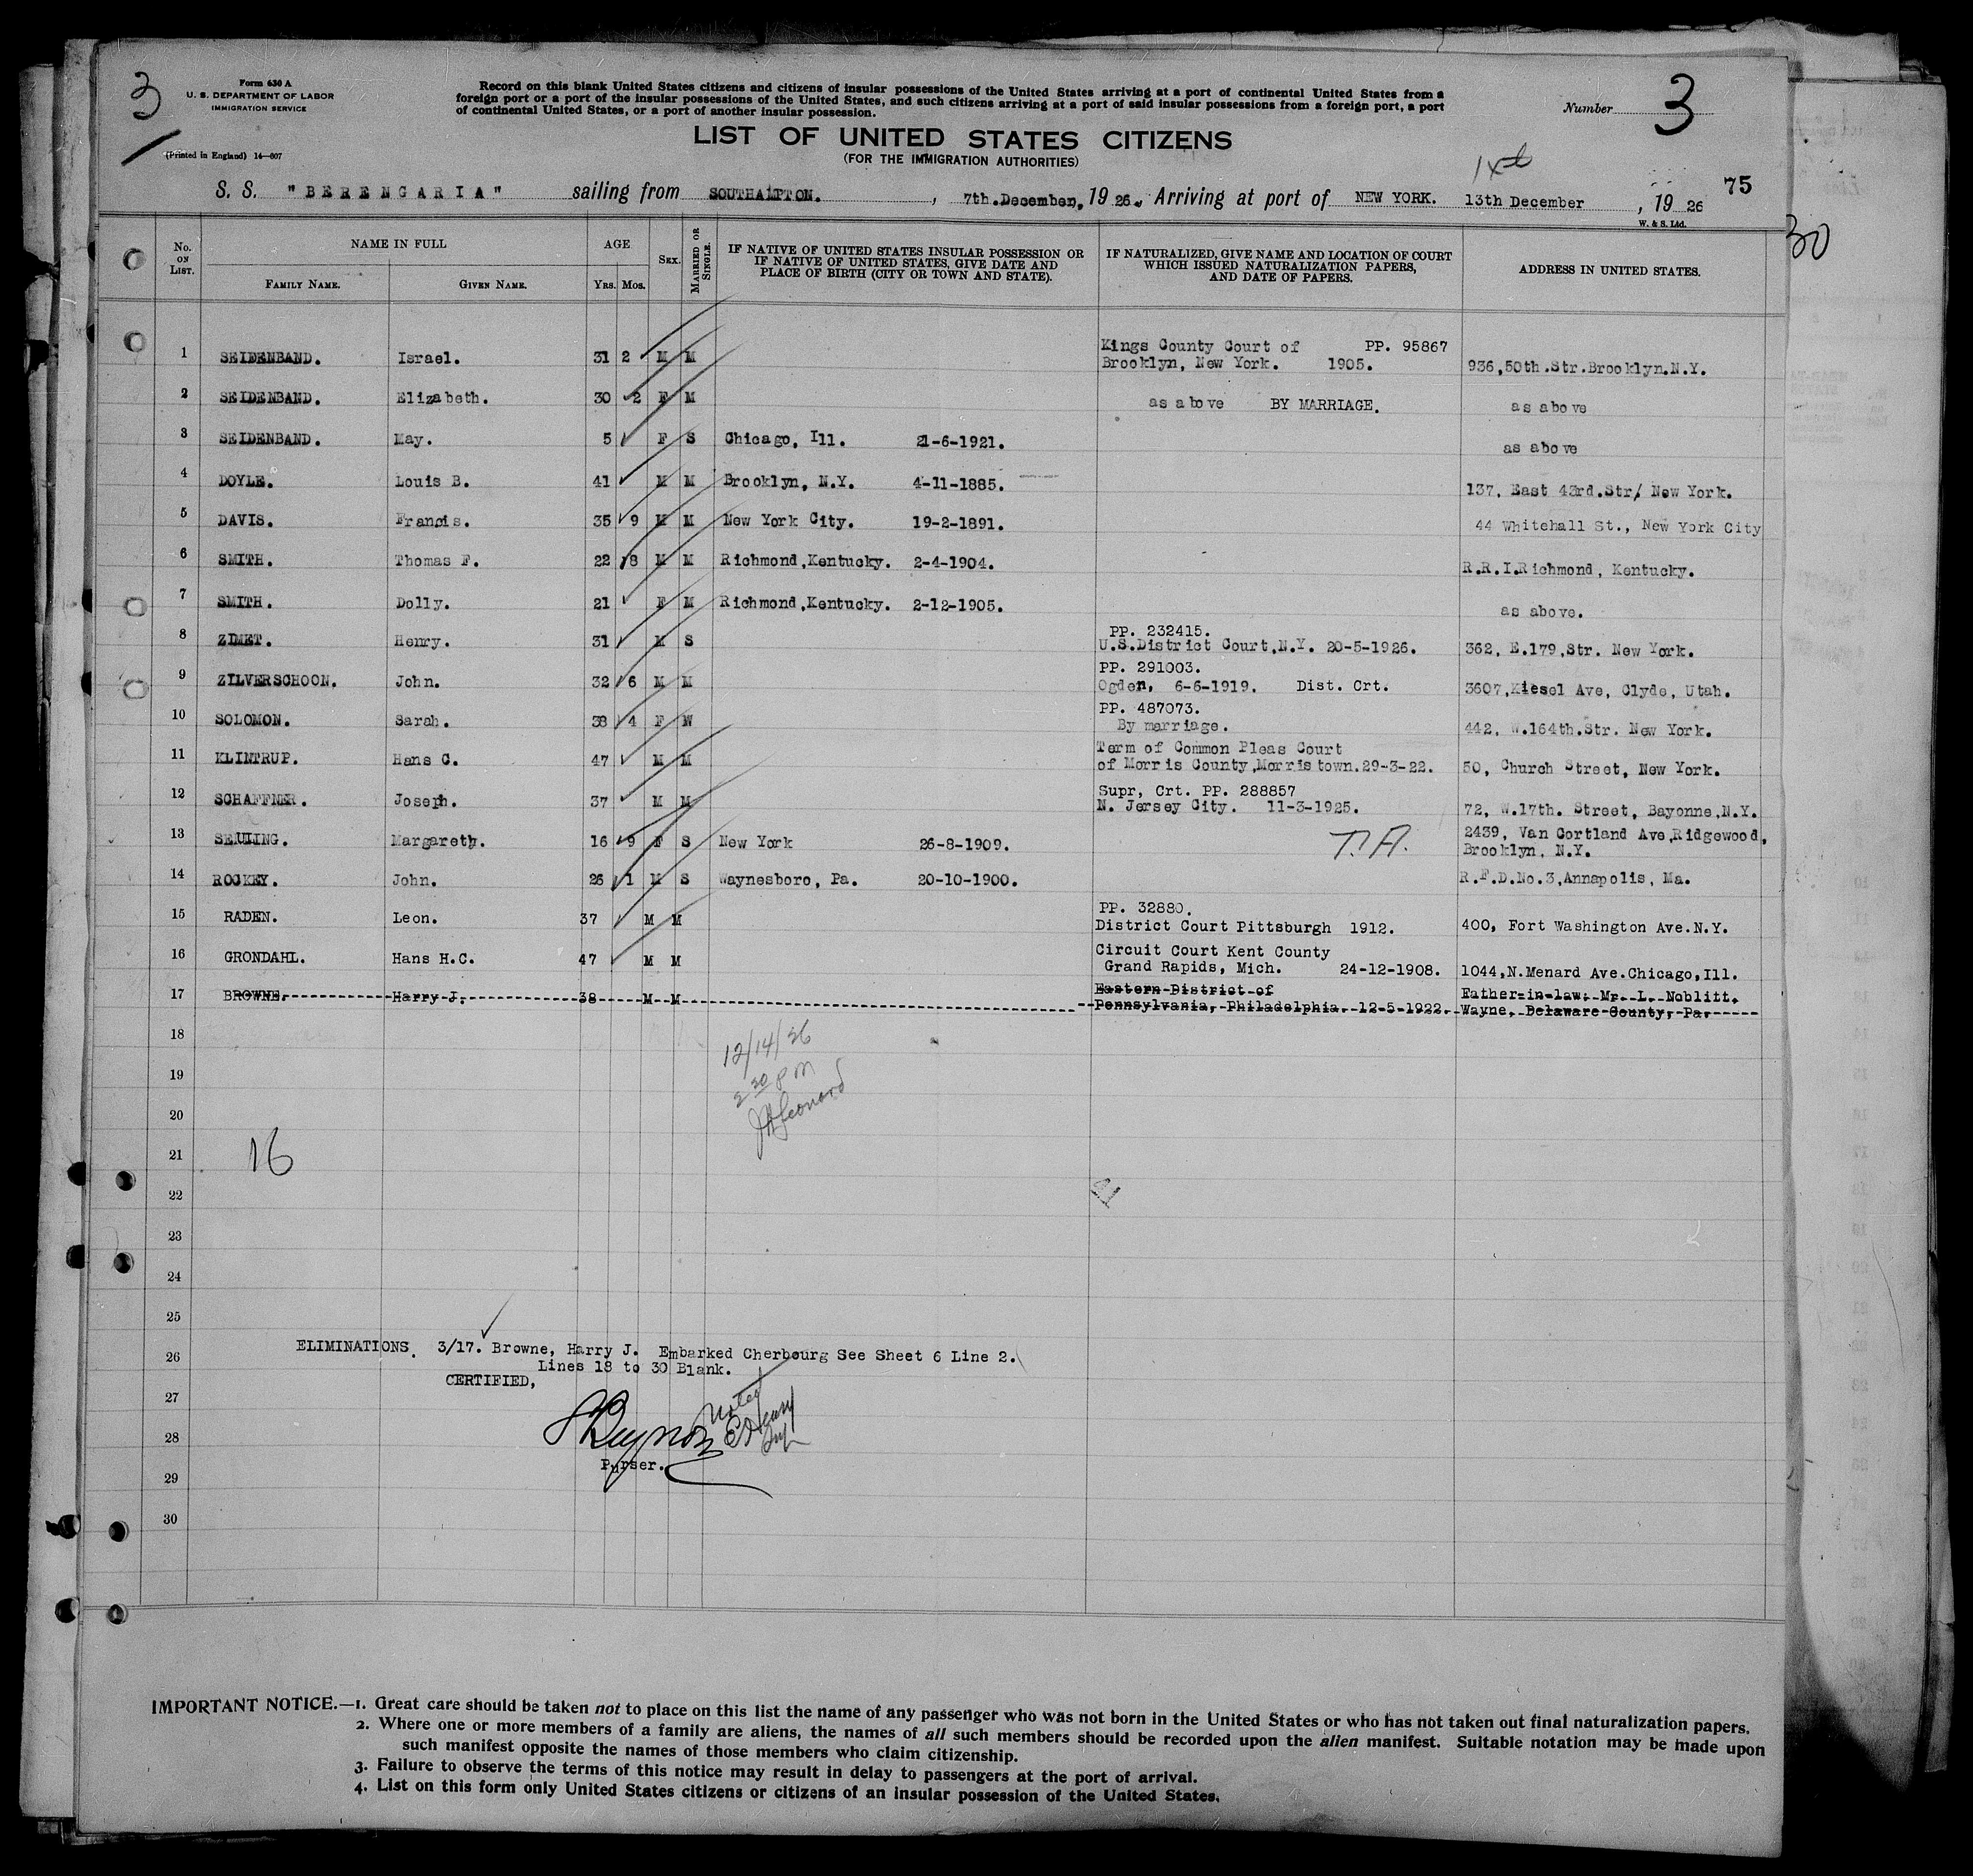 3
Form 630 A
U. S. DEPARTMENT OF LABOR
IMMIGRATION SERVICE
(Printed in England) 14—607
Record on this blank United States citizens and citizens of insular possessions of the United States arriving at a port of continental United States from a
foreign port or a port of the insular possessions of the United States, and such citizens arriving at a port of said insular possessions from a foreign port, a port
of continental United States, or a port of another insular possession.
Number 3
LIST OF UNITED STATES CITIZENS
(FOR THE IMMIGRATION AUTHORITIES)
14th
75
S. S. "BERENGARIA" sailing from SOUTHAMPTON. , 7th.December, 1926. Arriving at port of NEW YORK. 13th December , 1926
W. & S. Ltd.
30
No. ON LIST. NAME IN FULL AGE SEX. MARRIED OR SINGLE. IF NATIVE OF UNITED STATES INSULAR POSSESSION OR IF NATIVE OF UNITED STATES, GIVE DATE AND PLACE OF BIRTH (CITY OR TOWN AND STATE). IF NATURALIZED, GIVE NAME AND LOCATION OF COURT WHICH ISSUED NATURALIZATION PAPERS, AND DATE OF PAPERS. ADDRESS IN UNITED STATES.
FAMILY NAME. GIVEN NAME. YRS. MOS.
1 SEIDENBAND. Israel. 31 2 M M Kings County Court of PP. 95867
Brooklyn, New York. 1905. 936,50th.Str.Brooklyn.N.Y.
2 SEIDENBAND. Elizabeth. 30 2 F M as above BY MARRIAGE. as above
3 SEIDENBAND. May. 5 F S Chicago, Ill. 21-6-1921. as above
4 DOYLE. Louis B. 41 M M Brooklyn, N.Y. 4-11-1885. 137, East 43rd.Str/ New York.
5 DAVIS. Francis. 35 9 M M New York City. 19-2-1891. 44 Whitehall St., New York City
6 SMITH. Thomas F. 22 8 M M Richmond,Kentucky. 2-4-1904. R.R.I.Richmond, Kentucky.
7 SMITH. Dolly. 21 F M Richmond,Kentucky. 2-12-1905. as above.
8 ZIMET. Henry. 31 M S PP. 232415.
U.S.District Court,N.Y. 20-5-1926. 362, E.179,Str. New York.
9 ZILVERSCHOON. John. 32 6 M M PP. 291003.
Ogden, 6-6-1919. Dist. Crt. 3607,Kiesel Ave, Clyde, Utah.
10 SOLOMON. Sarah. 38 4 F W PP. 487073.
By marriage. 442, W.164th.Str. New York.
11 KLINTRUP. Hans C. 47 M M Term of Common Pleas Court
of Morris County,Morristown.29-3-22. 50, Church Street, New York.
12 SCHAFFNER. Joseph. 37 M M Supr, Crt. PP. 288857
N. Jersey City. 11-3-1925. 72, W.17th. Street, Bayonne,N.Y.
13 SEULING. Margareth. 16 9 F S New York 26-8-1909. T.A. 2439, Van Cortland Ave,Ridgewood,
Brooklyn, N.Y.
14 ROCKEY. John. 26 1 M S Waynesboro, Pa. 20-10-1900. R.F.D.No.3,Annapolis, Ma.
15 RADEN. Leon. 37 M M PP. 32880.
District Court Pittsburgh 1912. 400, Fort Washington Ave.N.Y.
16 GRONDAHL. Hans H.C. 47 M M Circuit Court Kent County
Grand Rapids, Mich. 24-12-1908. 1044,N.Menard Ave.Chicago,Ill.
17 BROWNE. Harry J. 38 M M Eastern District of
Pennsylvania, Philadelphia. 12-5-1922. Father-in-law: Mr. L. Noblitt,
Wayne, Delaware County, Pa.
18
12/14/26
19
2 30 PM
20
JA Leonard
21
16
22
23
24
25
26
ELIMINATIONS. 3/17. Browne, Harry J. Embarked Cherbourg See Sheet 6 Line 2.
Lines 18 to 30 Blank.
CERTIFIED,
27
Noted
28
Purser.
29
30
IMPORTANT NOTICE.—1. Great care should be taken not to place on this list the name of any passenger who was not born in the United States or who has not taken out final naturalization papers.
2. Where one or more members of a family are aliens, the names of all such members should be recorded upon the alien manifest. Suitable notation may be made upon
such manifest opposite the names of those members who claim citizenship.
3. Failure to observe the terms of this notice may result in delay to passengers at the port of arrival.
4. List on this form only United States citizens or citizens of an insular possession of the United States.